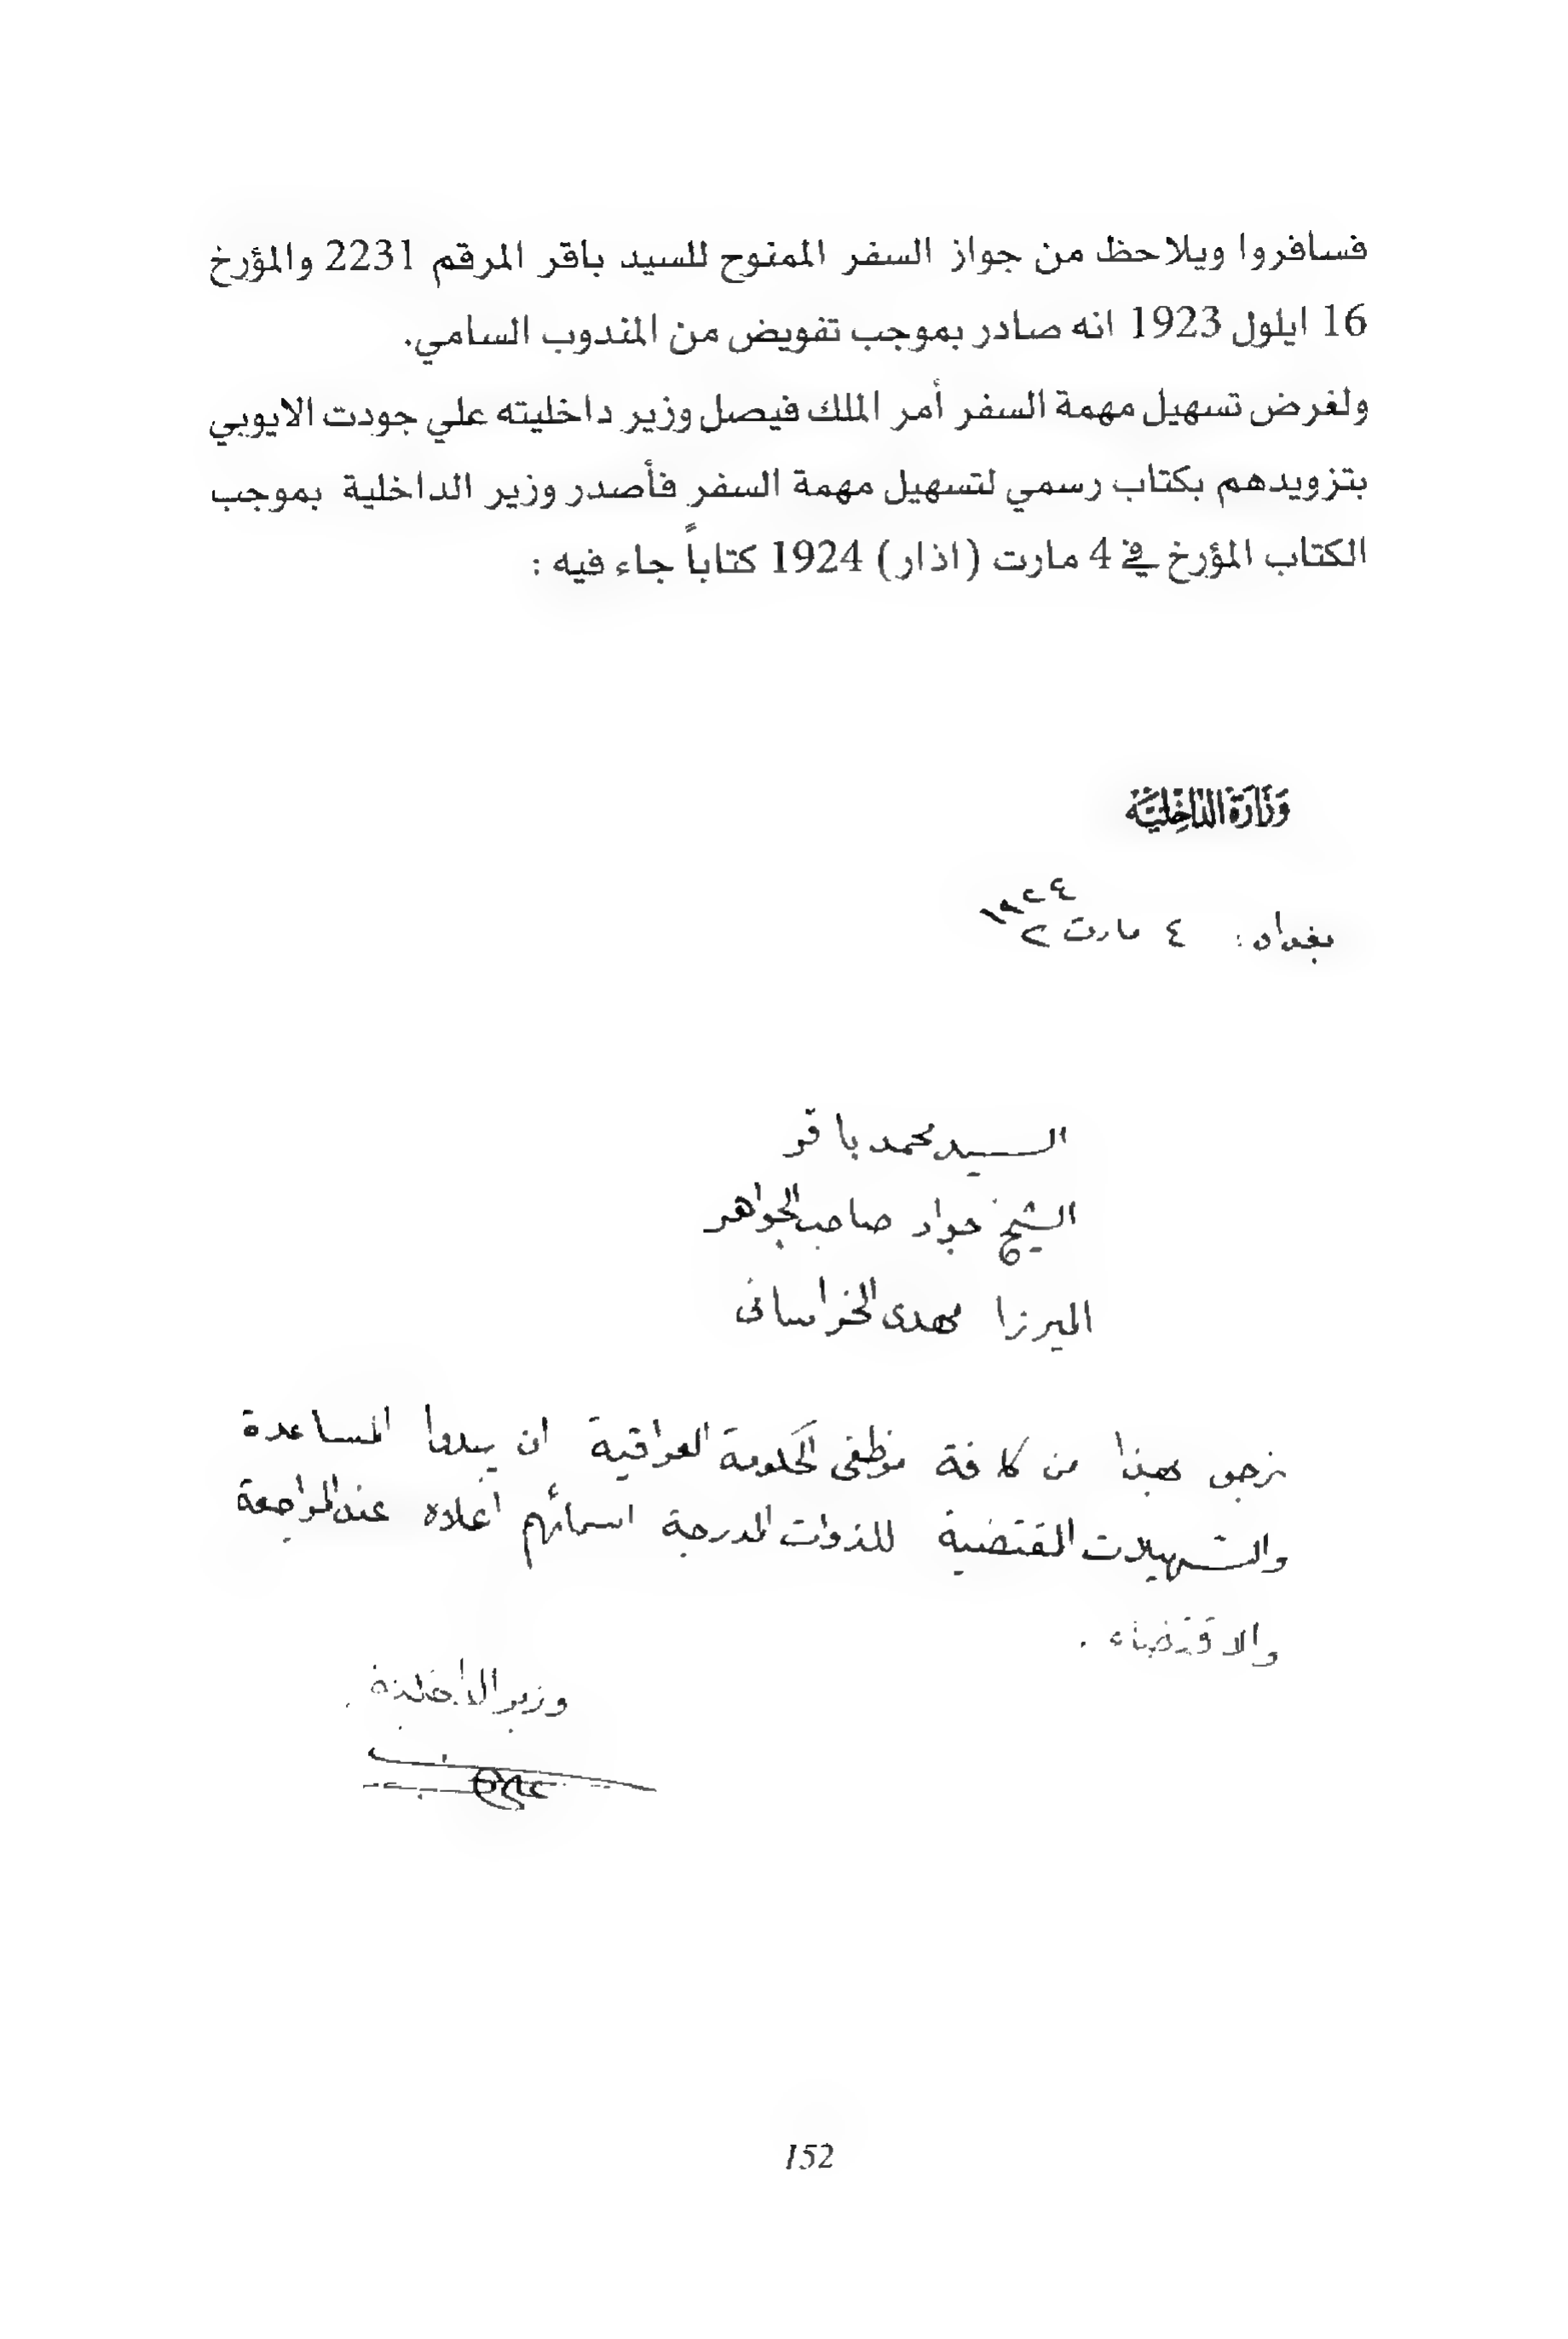 فسافروا ويلاحظ من جواز السفر الممنوح للسيد باقر المرقم 2231 والمؤرخ
16 ايلول 1923 انه صادر بموجب تفويض من المندوب السامي.
ولغرض تسهيل مهمة السفر أمر الملك فيصل وزير داخليته علي جودت الايوبي
بتزويدهم بكتاب رسمي لتسهيل مهمة السفر فأصدر وزير الداخلية بموجب
الكتاب المؤرخ في 4 مارت (اذار) 1924 كتاباً جاء فيه :
وزارة الداخلية
بغداد: ٤ مارت ١٩٢٤
السيد محمد باقر
الشيخ جواد صاحب الجواهر
الميرزا مهدى الخراسانى
نرجو بهذا من كافة موظفى الحكومة العراقية ان يبدوا المساعدة
والتسهيلات المقتضية للذوات المدرجة اسمائهم أعلاه عند المراجعة
والاقتضاء .
وزير الداخلية
152